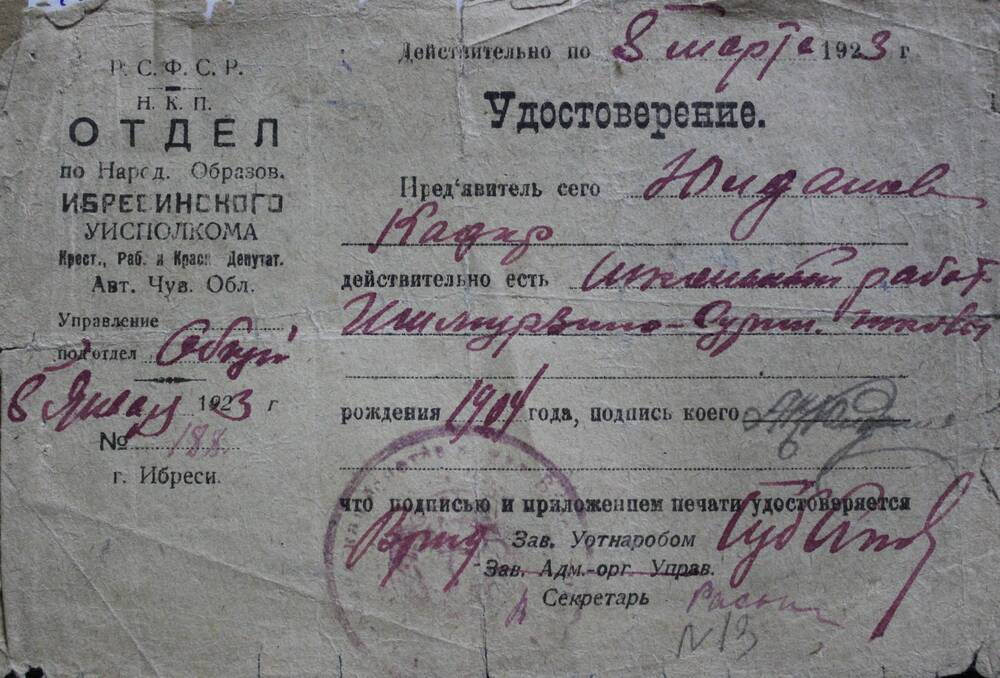 Р. С. Ф. С. Р.
Н. К. П.
ОТДЕЛ
по Народ. Образов.
ИБРЕСИНСКОГО
УИСПОЛКОМА
Крест., Раб. и Красн. Депутат.
Авт. Чув. Обл.
Управление
подотдел
8 Января 1923 г
№ 188.
г. Ибреси.
Действительно по 8 марта 1923 г
Удостоверение.
Пред‘явитель сего Юлдашев
Кадыр
действительно есть школьный работ
рождения 1904 года, подпись коего
что подписью и приложением печати удостоверяется
Врид Зав. Уотнаробом
Зав. Адм.-орг. Управ.
Секретарь
N 13